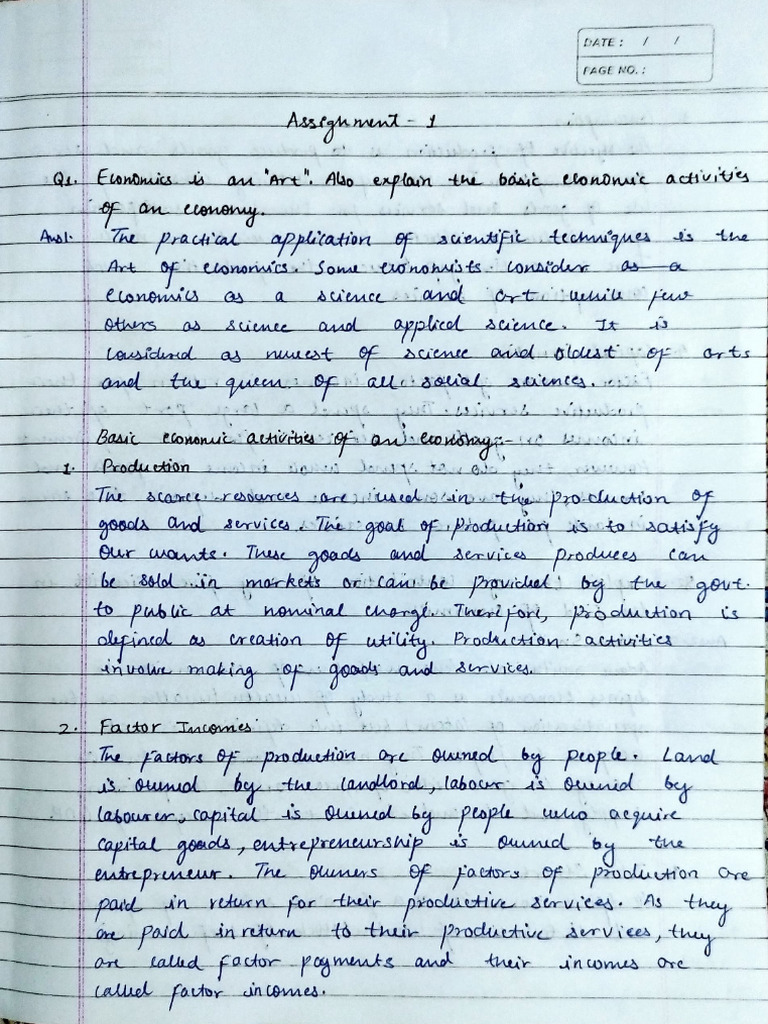 DATE: / /
PAGE NO.:
Assignment - 1
Q1. Economics is an "Art". Also explain the basic economic activities
of an economy.
Ans1. The practical application of scientific techniques is the
Art of economics. Some economists consider as a
economics as a science and art while few
others as science and applied science. It is
considered as newest of science and oldest of arts
and the queen of all social sciences.
Basic economic activities of an economy:-
1. Production
The scarce resources are used in the production of
goods and services. The goal of production is to satisfy
our wants. These goods and services produces can
be sold in markets or can be provided by the govt.
to public at nominal charge. Therefore, production is
defined as creation of utility. Production activities
involve making of goods and services.
2. Factor Incomes
The factors of production are owned by people. Land
is owned by the landlord, labour is owned by
labourer, capital is owned by people who acquire
capital goods, entrepreneurship is owned by the
entrepreneur. The owners of factors of production are
paid in return for their productive services. As they
are paid in return to their productive services, they
are called factor payments and their incomes are
called factor incomes.